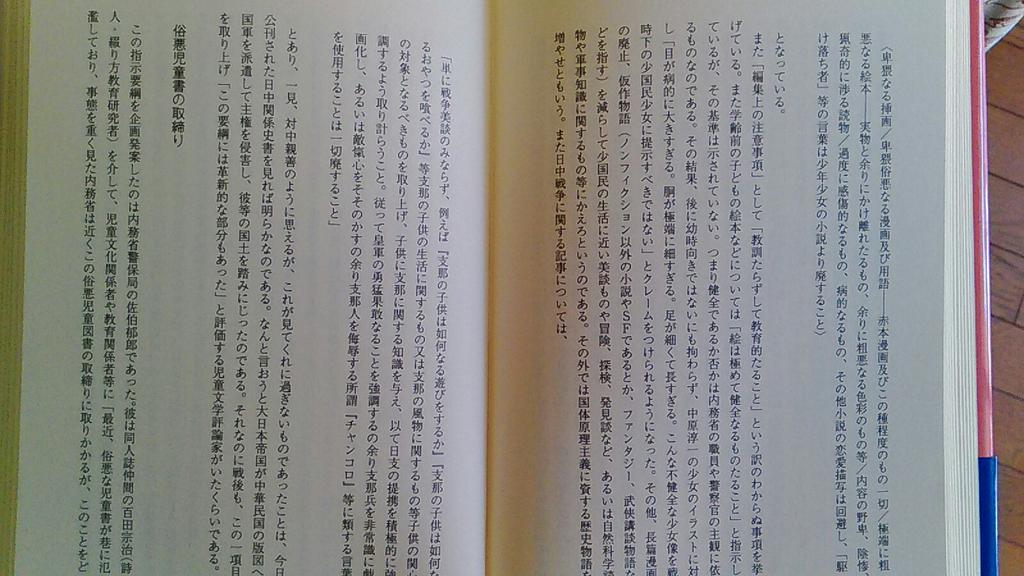 〈卑猥なる挿画／卑猥俗悪なる漫画及び用語――赤本漫画及びこの種程度のもの一切／極端に粗
悪なる絵本――実物と余りにかけ離れたるもの、余りに粗悪なる色彩のもの等／内容の野卑、陰惨
猟奇的に渉る読物／過度に感傷的なるもの、病的なるもの、その他小説の恋愛描写は回避し、「駆
け落ち者」等の言葉は少年少女の小説より廃すること〉
となっている。
また「編集上の注意事項」として「教訓たらずして教育的たること」という訳のわからぬ事項を挙
げている。また学齢前の子どもの絵本などについては「絵は極めて健全なるものたること」と指示し
ているが、その基準は示されていない。つまり健全であるか否かは内務省の職員や警察官の主観に依
るものなのである。その結果、後に幼時向きではないにも拘わらず、中原淳一の少女のイラストに対
し「目が病的に大きすぎる。胴が極端に細すぎる。足が細くて長すぎる。こんな不健全な少女像を戦
時下の少国民少女に提示すべきではない」とクレームをつけられるようになった。その他、長篇漫画
の廃止、仮作物語（ノンフィクション以外の小説やSFであるとか、ファンタジー、武俠講談物語な
どを指す）を減らして少国民の生活に近い美談ものや冒険、探検、発見談など、あるいは自然科学読
物や軍事知識に関するもの等にかえろというのである。その外では国体原理主義に資する歴史物語を
増やせともいう。また日中戦争に関する記事については、
「単に戦争美談のみならず、例えば『支那の子供は如何なる遊びをするか』『支那の子供は如何な
るおやつを喰べるか』等支那の子供の生活に関するもの又は支那の風物に関するもの等子供の関心
の対象となるべきものを取り上げ、子供に支那に関する知識を与え、以て日支の提携を積極的に強
調するよう取り計らうこと。従って皇軍の勇猛果敢なることを強調するの余り支那兵を非常識に戯
画化し、あるいは敵愾心をそそのかすの余り支那人を侮辱する所謂『チャンコロ』等に類する言葉
を使用することは一切廃すること」
とあり、一見、対中親善のように思えるが、これが見てくれに過ぎないものであったことは、今日
公刊された日中関係史書を見れば明らかなのである。なんと言おうと大日本帝国が中華民国の版図へ
国軍を派遣して主権を侵害し、彼等の国土を踏みにじったのである。それなのに戦後も、この一項目
を取り上げ「この要綱には革新的な部分もあった」と評価する児童文学評論家がいたくらいである。
俗悪児童書の取締り
この指示要綱を企画発案したのは内務省警保局の佐伯郁郎であった。彼は同人誌仲間の百田宗治（詩
人・綴り方教育研究者）を介して、児童文化関係者や教育関係者等に「最近、俗悪な児童書が巷に氾
濫しており、事態を重く見た内務省は近くこの俗悪児童図書の取締りに取りかかるが、このことをど